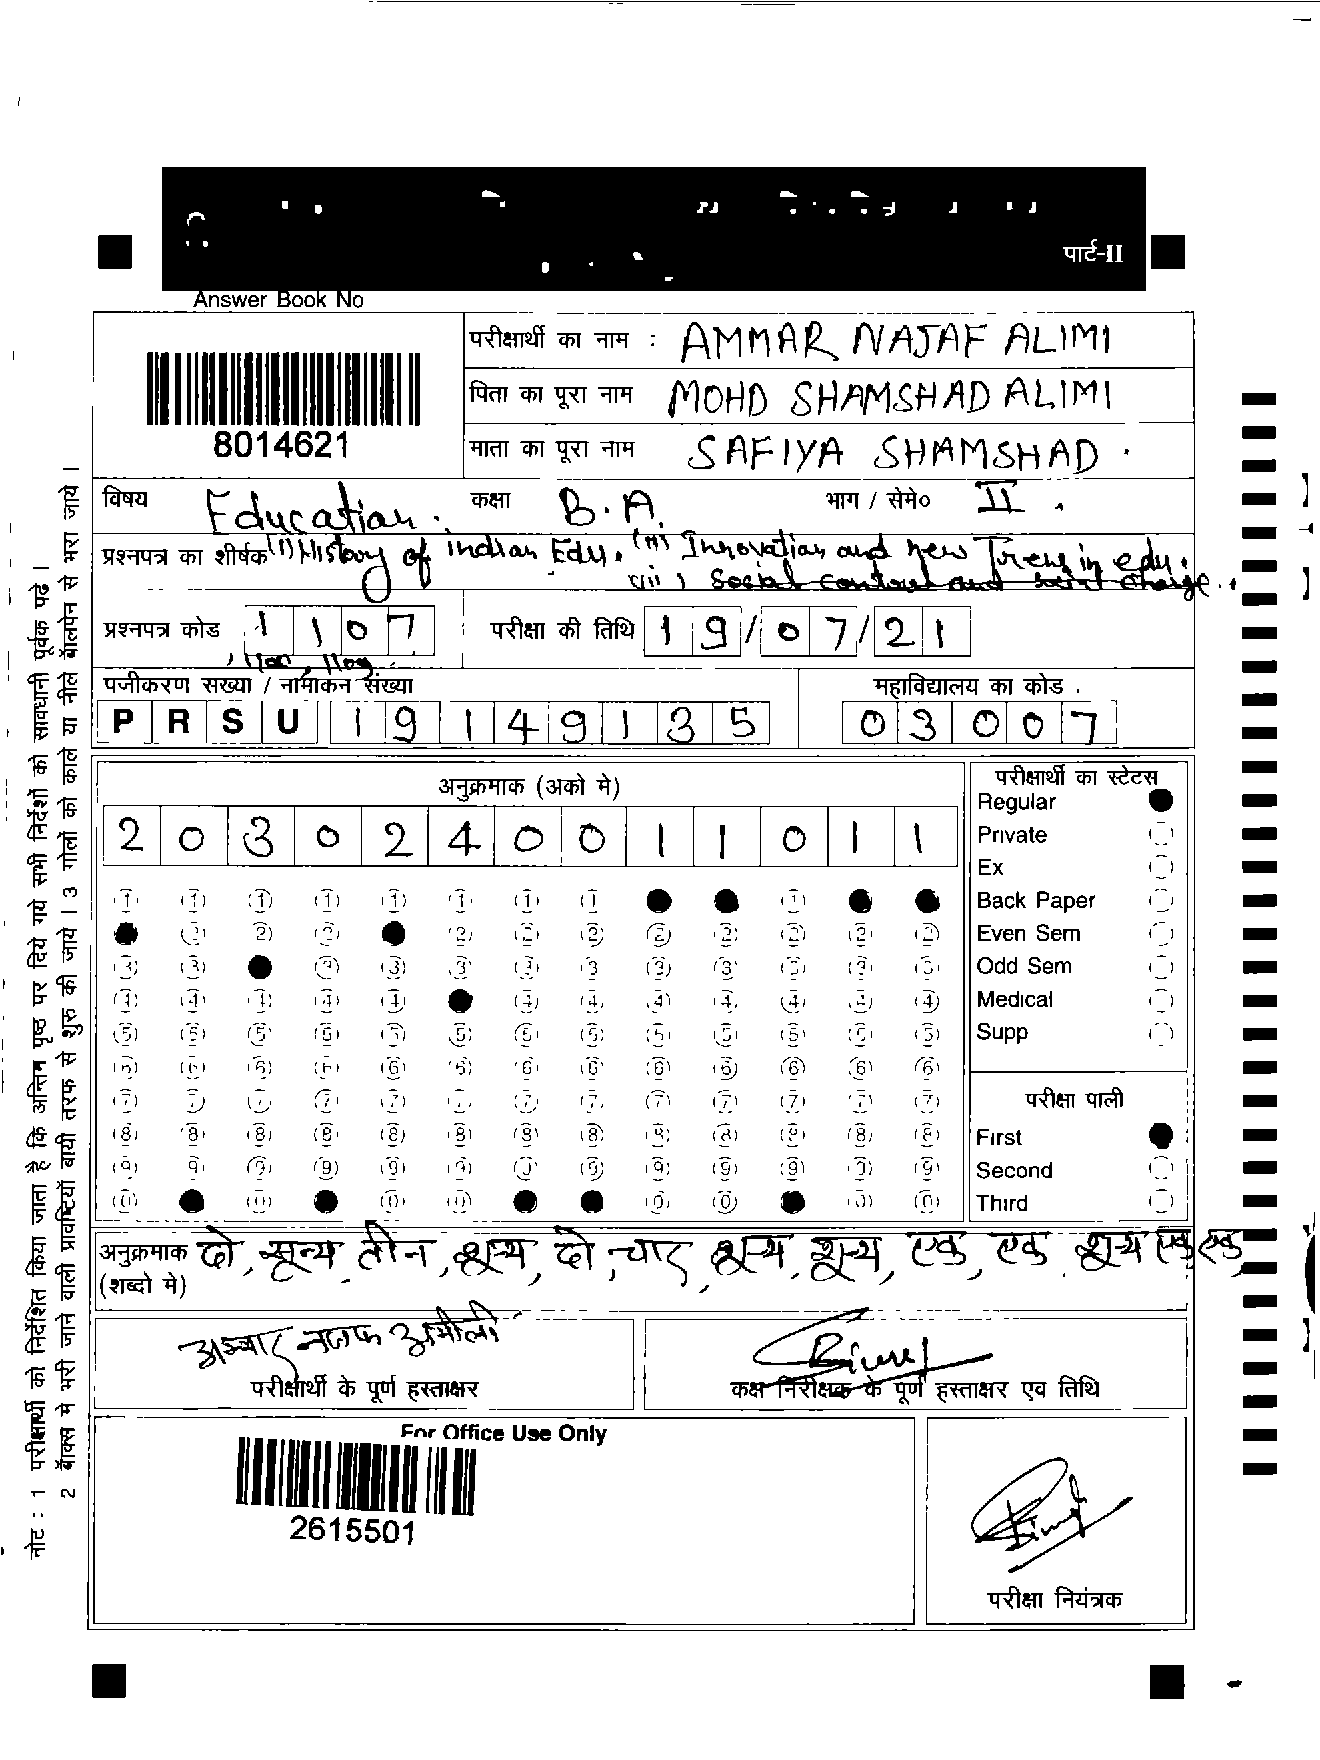 पार्ट-II
Answer Book No
8014621
परीक्षार्थी का नाम : AMMAR NAJAF ALIMI
पिता का पूरा नाम MOHD SHAMSHAD ALIMI
माता का पूरा नाम SAFIYA SHAMSHAD .
विषय Education . कक्षा B.A. भाग / सेमे० II .
प्रश्नपत्र का शीर्षक (i) History of indian Edu. (ii) Innovation and new Trens in edu.
(iii) Social control and social change..
प्रश्नपत्र कोड 1107 परीक्षा की तिथि 19/07/21
पजीकरण सख्या / नामाकन संख्या महाविद्यालय का कोड .
PRSU19149135 03007
अनुक्रमाक (अको मे)
2030240011011
परीक्षार्थी का स्टेटस
Regular
Private
Ex
Back Paper
Even Sem
Odd Sem
Medical
Supp
परीक्षा पाली
First
Second
Third
अनुक्रमाक दो, सून्य, तीन, शून्य, दो, चार, शून्य, शून्य, एक, एक, शून्य एक एक
(शब्दो मे)
अम्मार नजफ अलीमी
परीक्षार्थी के पूर्ण हस्ताक्षर
कक्ष निरीक्षक के पूर्ण हस्ताक्षर एव तिथि
For Office Use Only
2615501
परीक्षा नियंत्रक
नोट : 1 परीक्षार्थी को निर्देशित किया जाता है कि अन्तिम पृष्ठ पर दिये गये सभी निर्देशों को सावधानी पूर्वक पढे ।
2 बॉक्स मे भरी जाने वाली प्रावष्टियों बायी तरफ से शुरु की जाये । 3 गोलों को काले या नीले बॉलपेन से भरा जाये ।